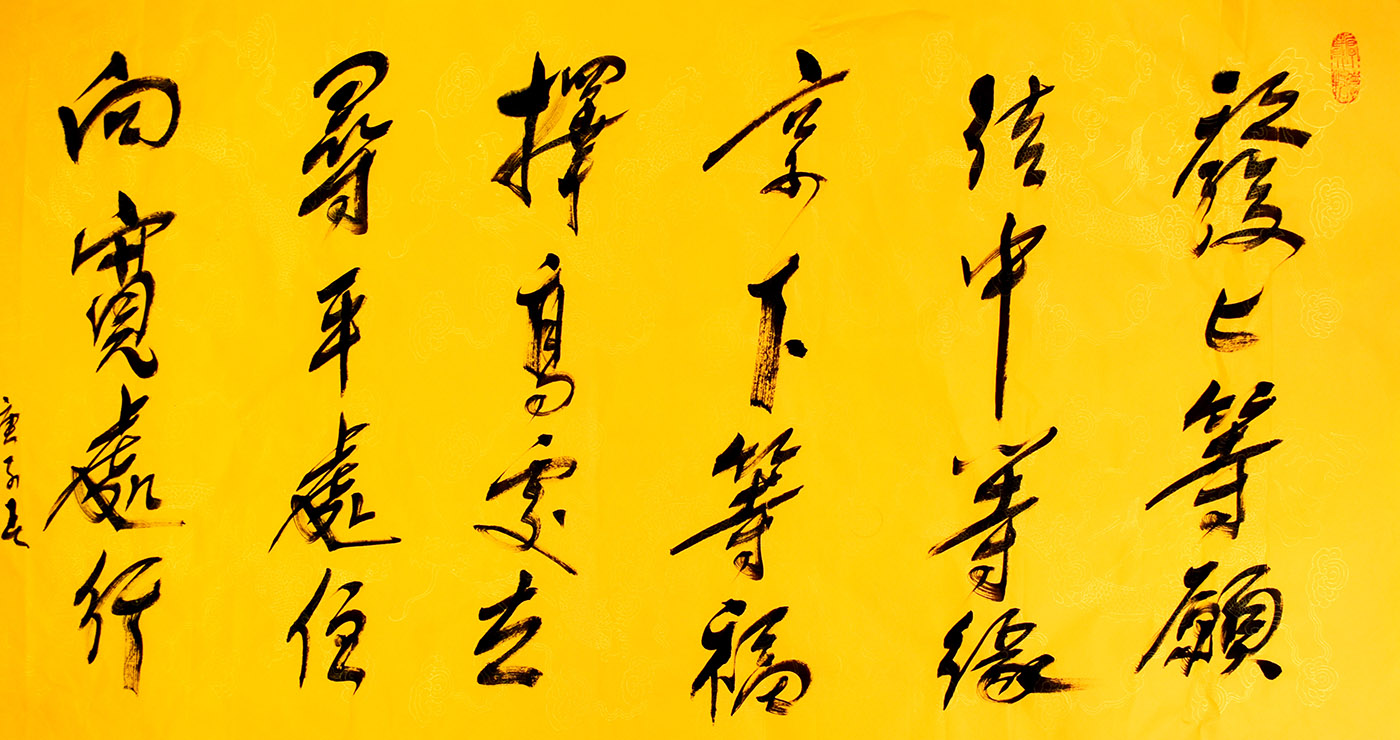 發上等願
結中等緣
享下等福
擇高處立
尋平處住
向寬處行
庚子春